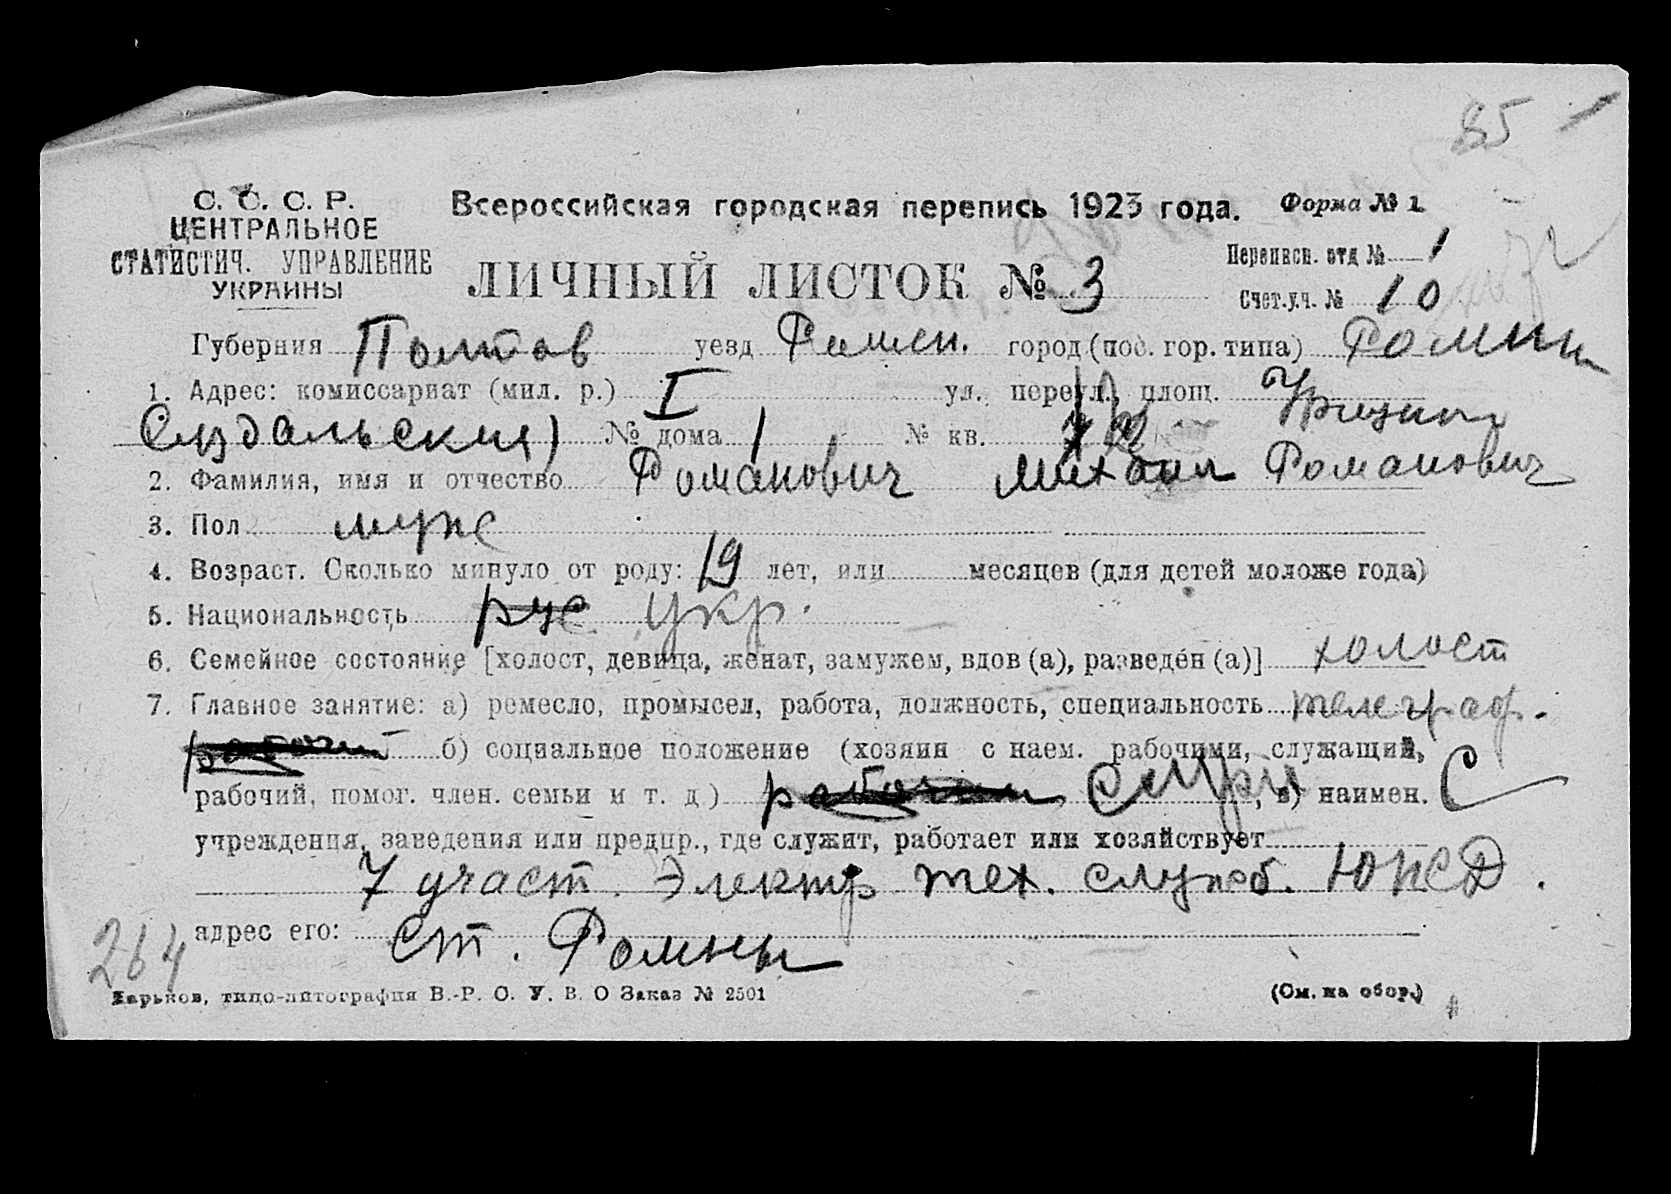 85
С. С. С. Р.
ЦЕНТРАЛЬНОЕ
СТАТИСТИЧ. УПРАВЛЕНИЕ
УКРАИНЫ
Всероссийская городская перепись 1923 года. Форма № 1
ЛИЧНЫЙ ЛИСТОК № 3
Переписн. отд № 1
Счет.уч. № 10
Губерния Полтав уезд Ромен. город (пос. гор. типа) Ромны
1. Адрес: комиссариат (мил. р.) I ул. переул., площ.
№ дома 1 № кв.
2. Фамилия, имя и отчество Романович Михаил Романович
3. Пол муж
4. Возраст. Сколько минуло от роду: 19 лет, или месяцев (для детей моложе года)
5. Национальность рус укр.
6. Семейное состояние [холост, девица, женат, замужем, вдов (а), разведен (а)] холост
7. Главное занятие: а) ремесло, промысел, работа, должность, специальность телеграф.
рабочий б) социальное положение (хозяин с наем. рабочими, служащий,
рабочий, помог. член. семьи и т. д) рабочий служ, в) наимен. С
учреждения, заведения или предпр., где служит, работает или хозяйствует
7 участ. Электр тех. служб. ЮЖД.
адрес его: ст. Ромны
264
Харьков, типо-литография В.-Р. О. У. В. О Заказ № 2501 (См. на обор.)